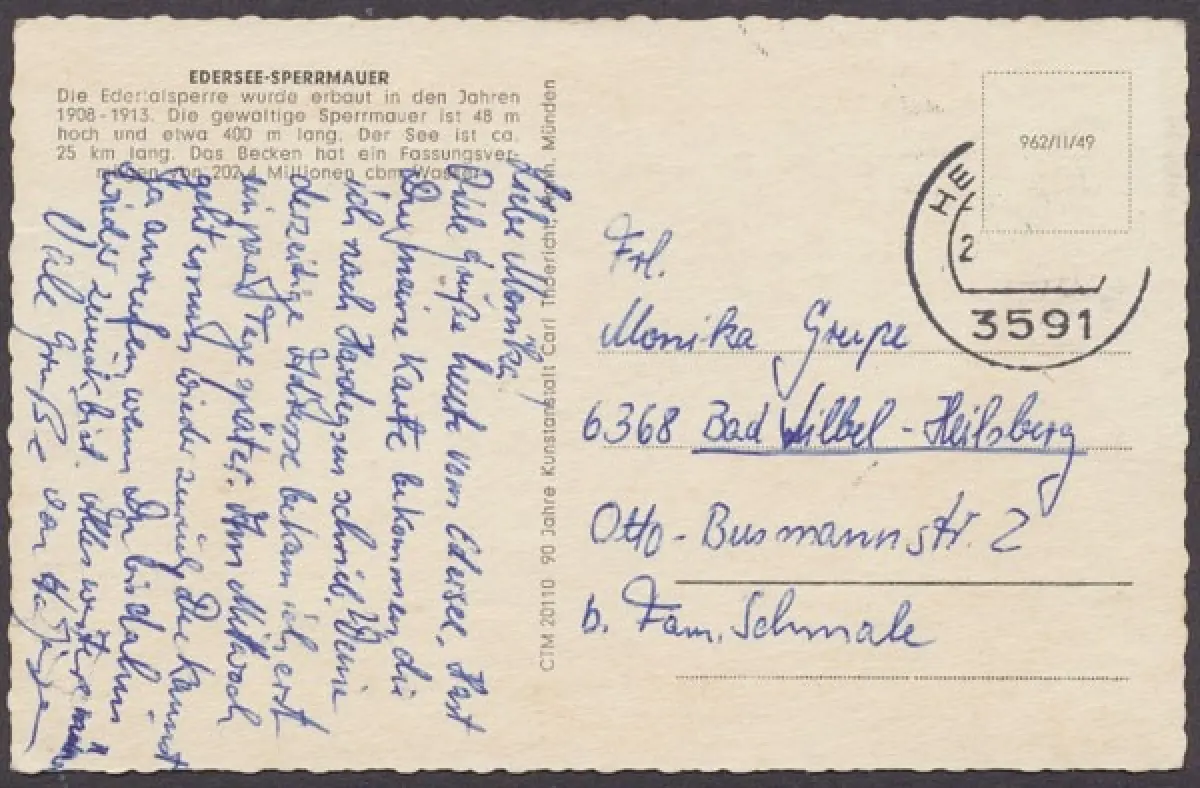 EDERSEE-SPERRMAUER
Die Edertalsperre wurde erbaut in den Jahren
1908-1913. Die gewaltige Sperrmauer ist 48 m
hoch und etwa 400 m lang. Der See ist ca.
25 km lang. Das Becken hat ein Fassungsver-
mögen von 202,4 Millionen cbm Wasser.
Liebe Monika!
Viele Grüße heute vom Edersee. Hast
Du meine Karte bekommen, die
ich nach Hardegsen schrieb. Deine
derzeitige Adresse bekam ich erst
ein paar Tage später. Am Mittwoch
geht es wieder zurück. Du kannst
ja anrufen, wenn Du bis dahin
wieder zurück bist. Alles weitere
Viele Grüße von
CTM 20110 90 Jahre Kunstanstalt Carl Thoericht, Hann. Münden
962/II/49
HE
2
3591
Frl.
Monika Grupe
6368 Bad Vilbel - Heilsberg
Otto-Busmannstr. 2
b. Fam. Schmale